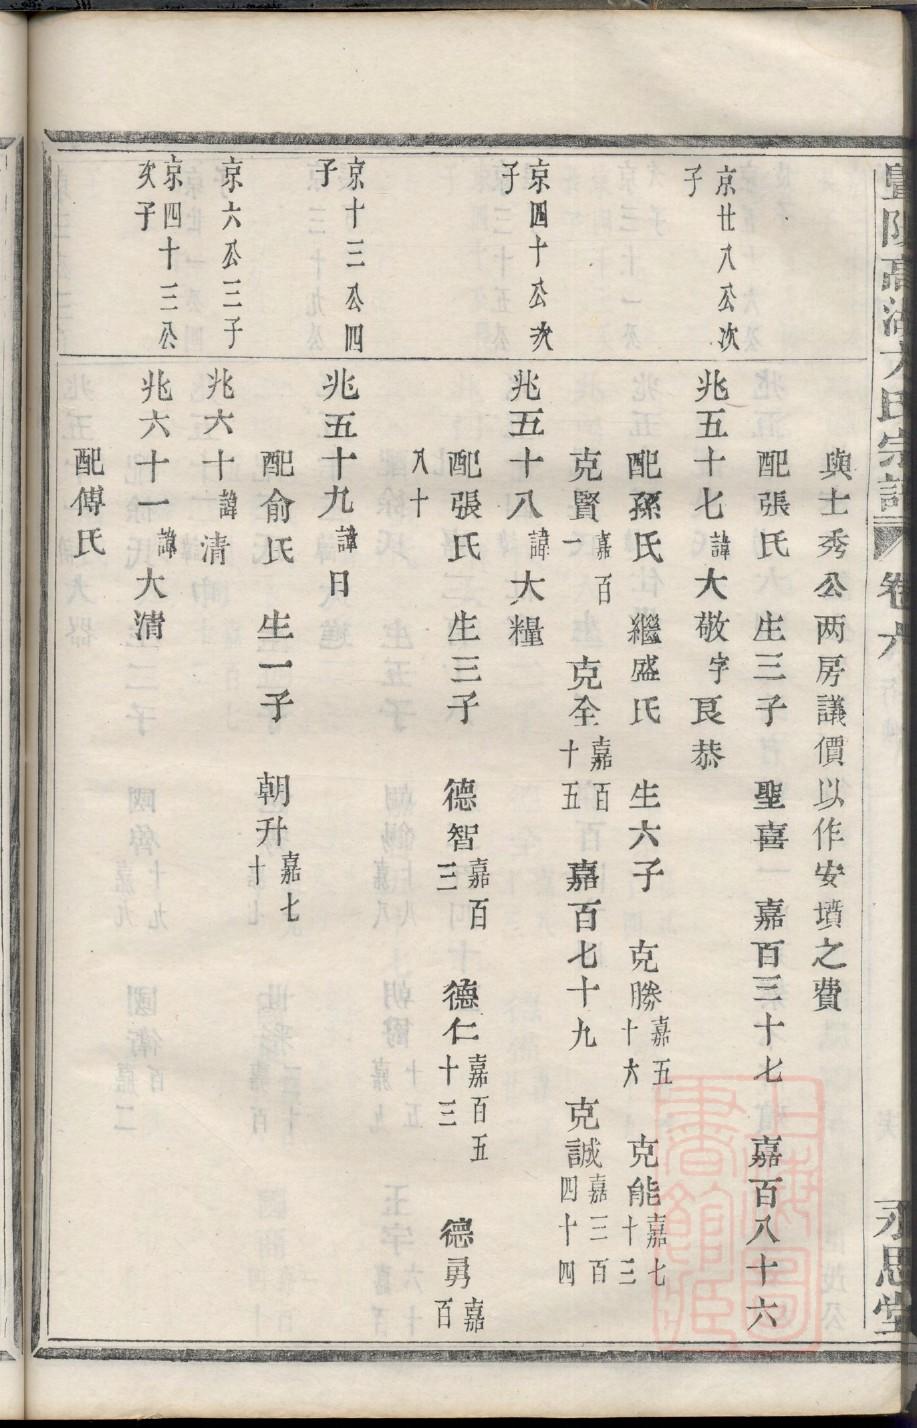 與士秀公两房議價以作安墳之費
配張氏 生三子 聖喜一 嘉百三十七 嘉百八十六
京廿八公次子
兆五十七諱大敬字艮恭
配孫氏 繼盛氏 生六子 克勝嘉五十六 克能嘉七十三
克賢嘉百一 克全嘉百十五 嘉百七十九 克誠嘉三百四十四
京四十公次子
兆五十八諱大糧
配張氏 生三子 德智嘉百三 德仁嘉百五十三 德勇嘉百
八十
京十三公四子
兆五十九諱日
配俞氏 生一子 朝升嘉七十
京六公三子
兆六十諱清
京四十三公次子
兆六十一諱大清
配傅氏
卷六
永思堂